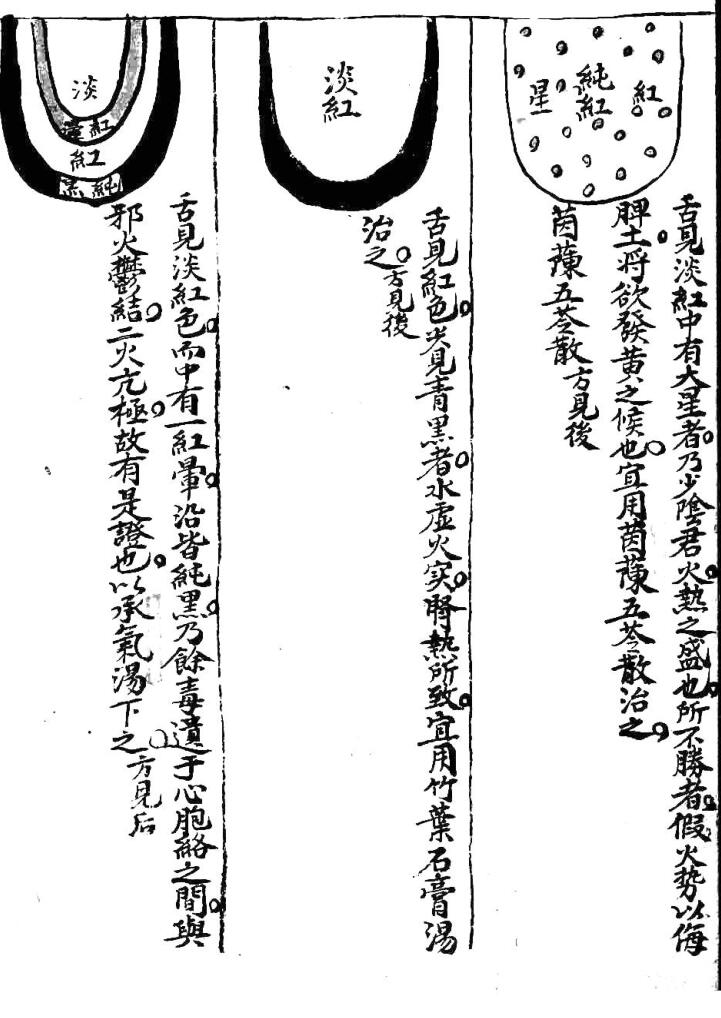 純紅
紅
星
舌見淡紅中有大星者乃少陰君火熱之盛也所不勝者假火势以侮
脾土將欲發黄之候也宜用茵蔯五苓散治之
茵蔯五苓散方見後
淡紅
舌見紅色尖見青黑者水虛火实腎熱所致宜用竹葉石膏湯
治之方見後
淡
紅暈
紅
純黑
舌見淡紅色而中有一紅暈沿皆純黑乃餘毒遺于心胞絡之間與
邪火鬱結二火亢極故有是證也以承氣湯下之方見后